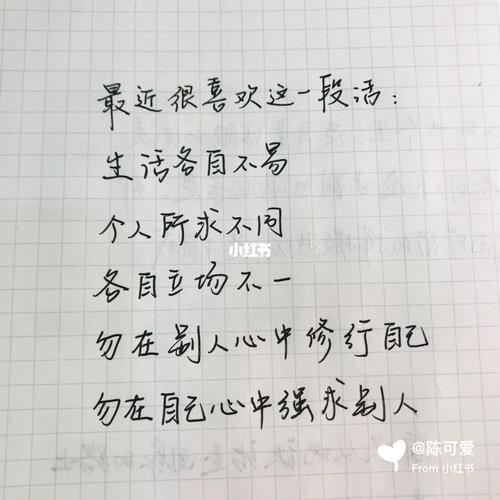 最近很喜欢这一段话：
生活各自不易
个人所求不同
小红书
各自立场不一
勿在别人心中修行自己
勿在自己心中强求别人
@陈可爱
From 小红书